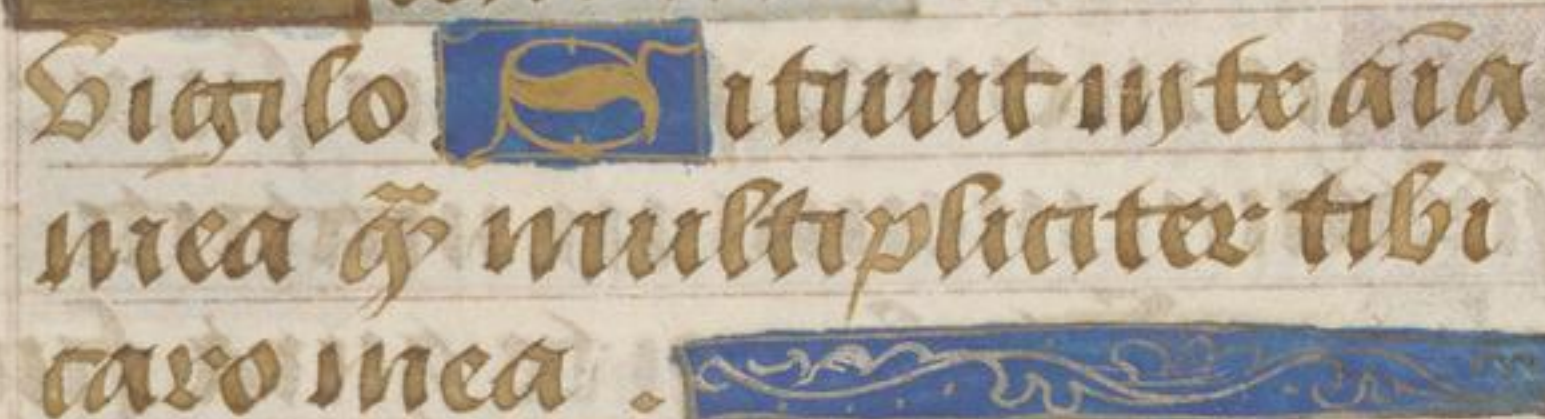 vigilo Sitiuit in te aĩa
mea q̃ multipliciter tibi
caro mea .